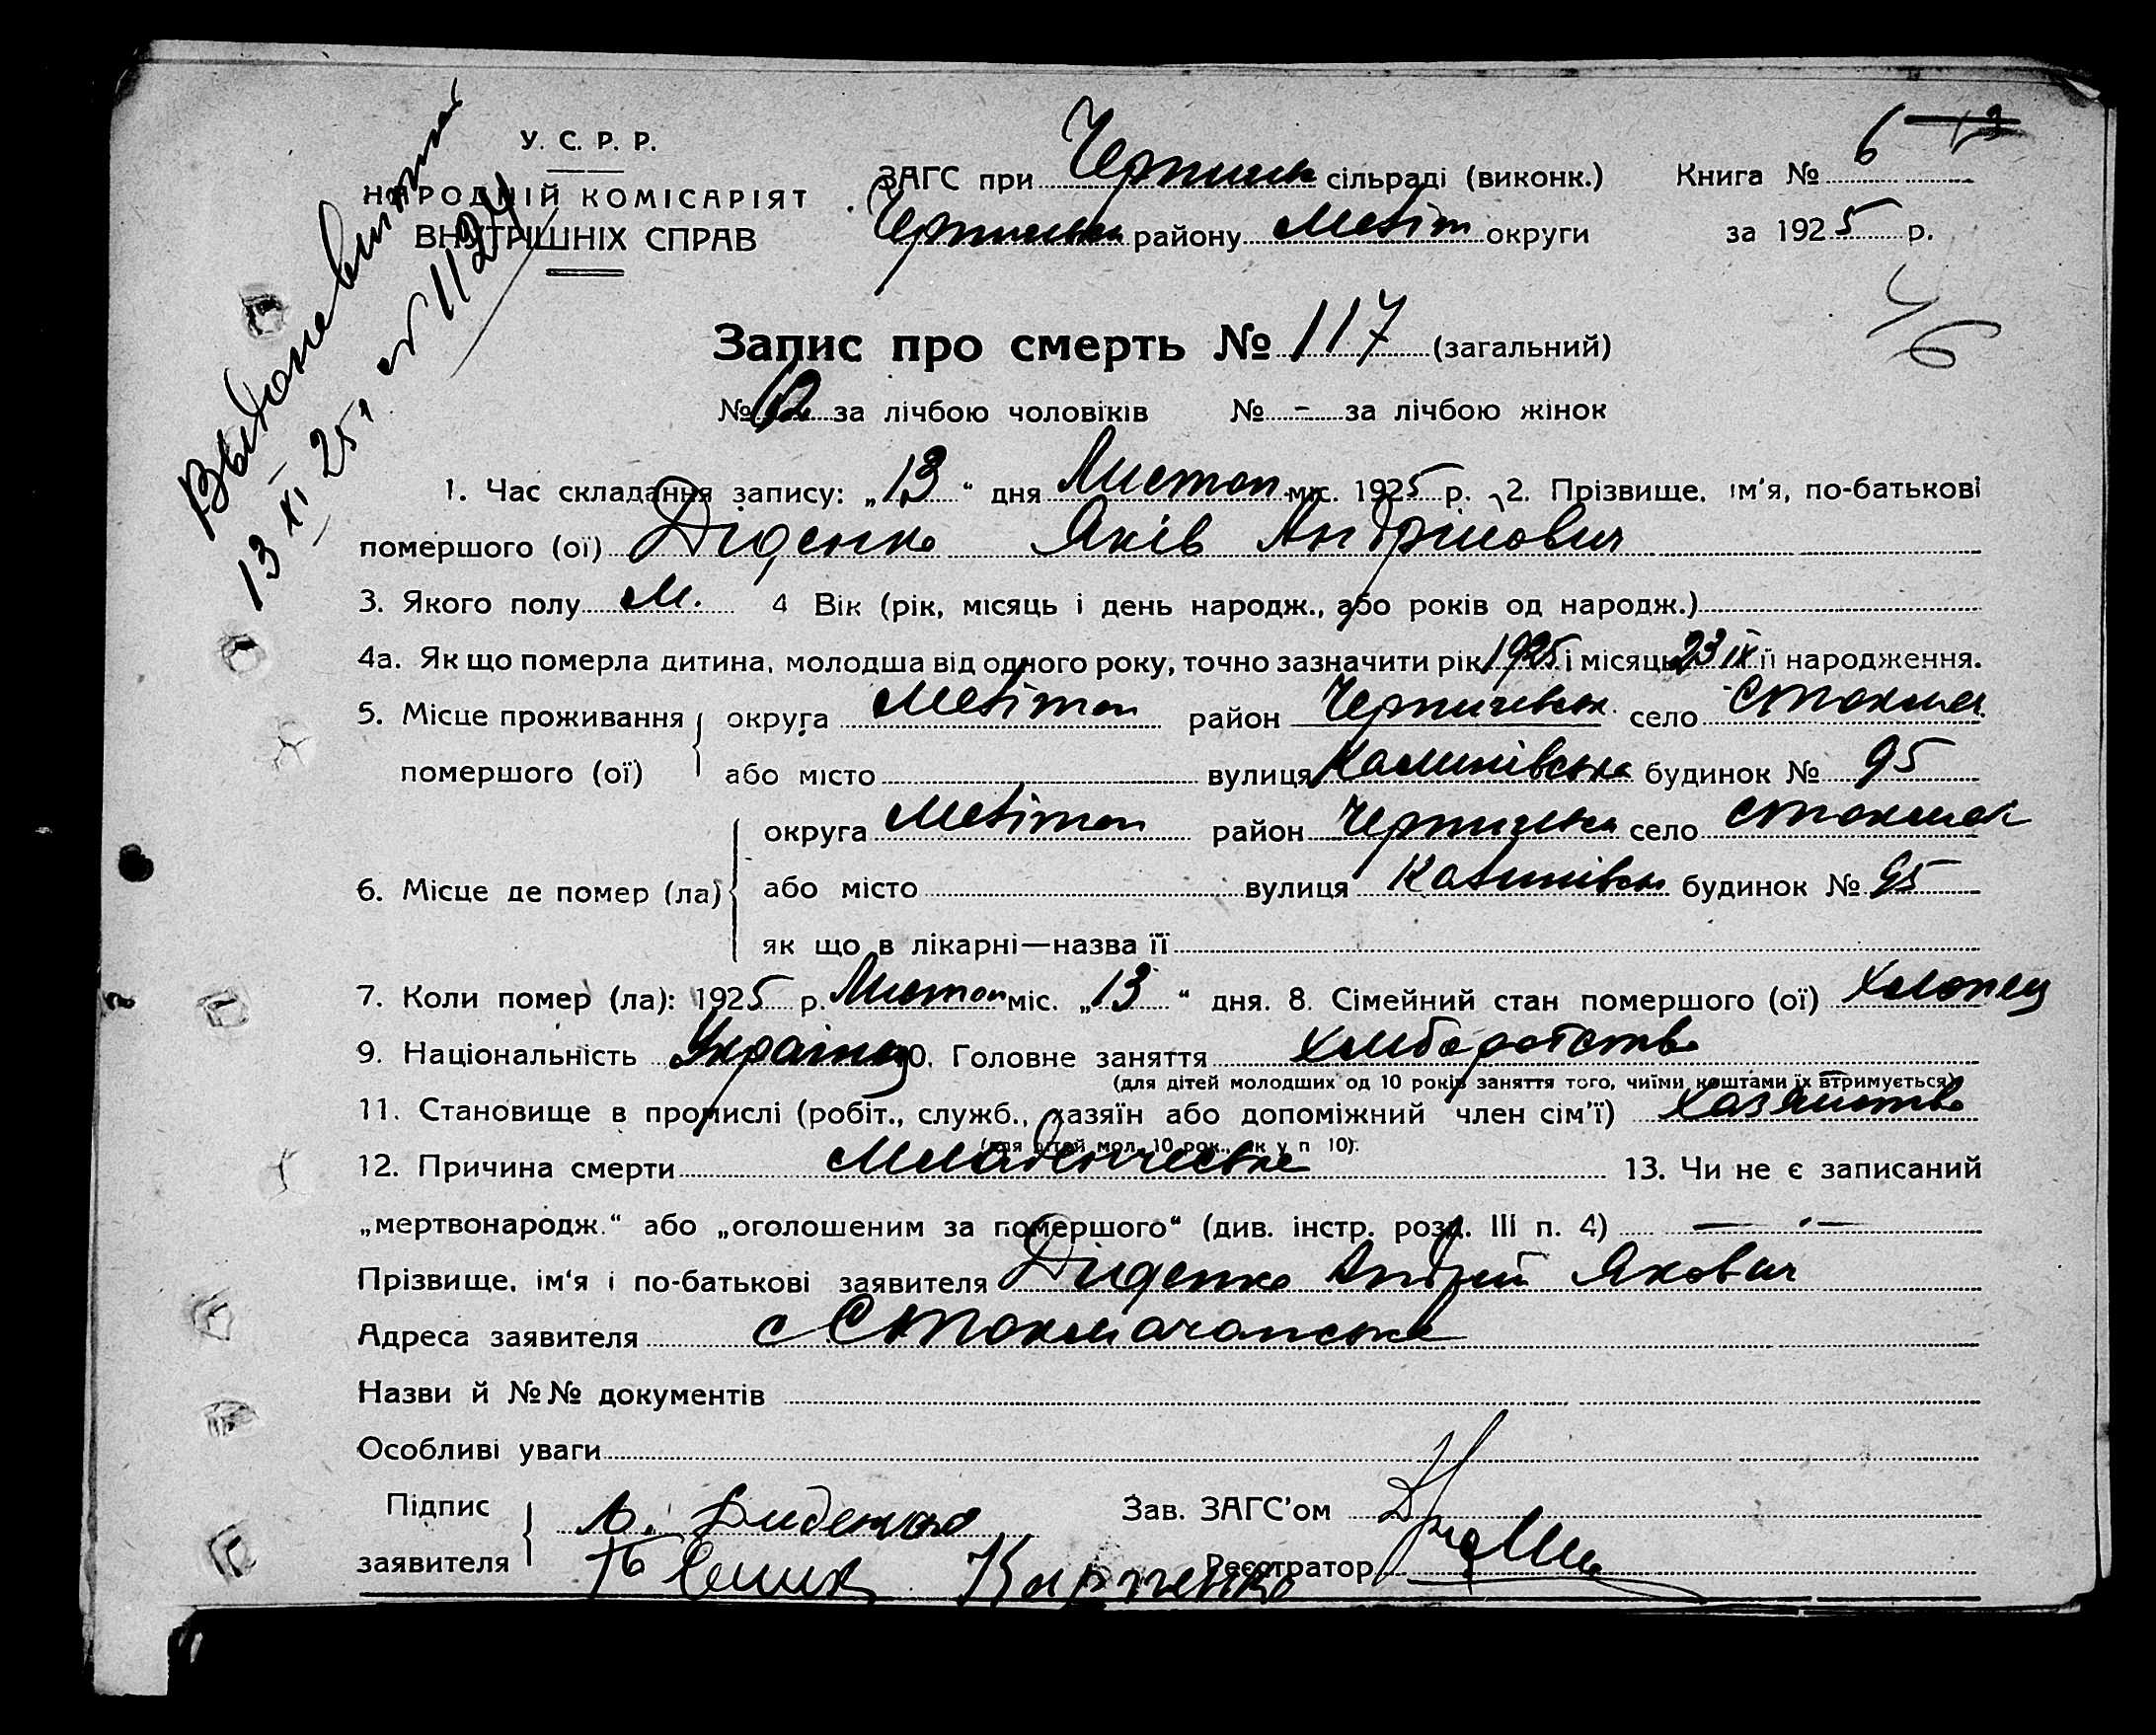 У. С. Р. Р.
НАРОДНІЙ КОМІСАРІЯТ
ВНУТРІШНІХ СПРАВ
ЗАГС при сільраді (виконк.) Книга № 6
району Меліт округи за 1925 р.
13 XI 25 № 1124
Запис про смерть № 117 (загальний)
№ за лічбою чоловіків № - за лічбою жінок
1. Час складання запису: „13“ дня Листоп міс. 1925 р. 2. Прізвище, ім'я, по-батькові
помершого (ої) Діденко Яків Андрійович
3. Якого полу М. 4 Вік (рік, місяць і день народж., або років од народж.)
4а. Як що померла дитина, молодша від одного року, точно зазначити рік 1925 і місяць 23 IX її народження.
5. Місце проживання округа Мелітоп район село
помершого (ої) або місто вулиця Калинівська будинок № 95
округа Мелітоп район село Стокмак
6. Місце де помер (ла) або місто вулиця Калинівськ будинок № 95
як що в лікарні—назва її
7. Коли помер (ла): 1925 р. Листоп міс. „13“ дня. 8. Сімейний стан помершого (ої) Хлопец
9. Національність Українец 10. Головне заняття Хліборобство
(для дітей молодших од 10 років заняття того, чиїми коштами їх втримується)
11. Становище в промислі (робіт., служб., хазяїн або допоміжний член сім'ї)
(для дітей мол. 10 рок., як у п 10).
12. Причина смерти Младенческе 13. Чи не є записаний
„мертвонародж.“ або „оголошеним за помершого“ (див. інстр. розд. III п. 4) —
Прізвище, ім'я і по-батькові заявителя Діденко Андрій Якович
Адреса заявителя с
Назви й №№ документів
Особливі уваги
Підпис Диденко Зав. ЗАГС'ом
заявителя Карпенко Реєстратор